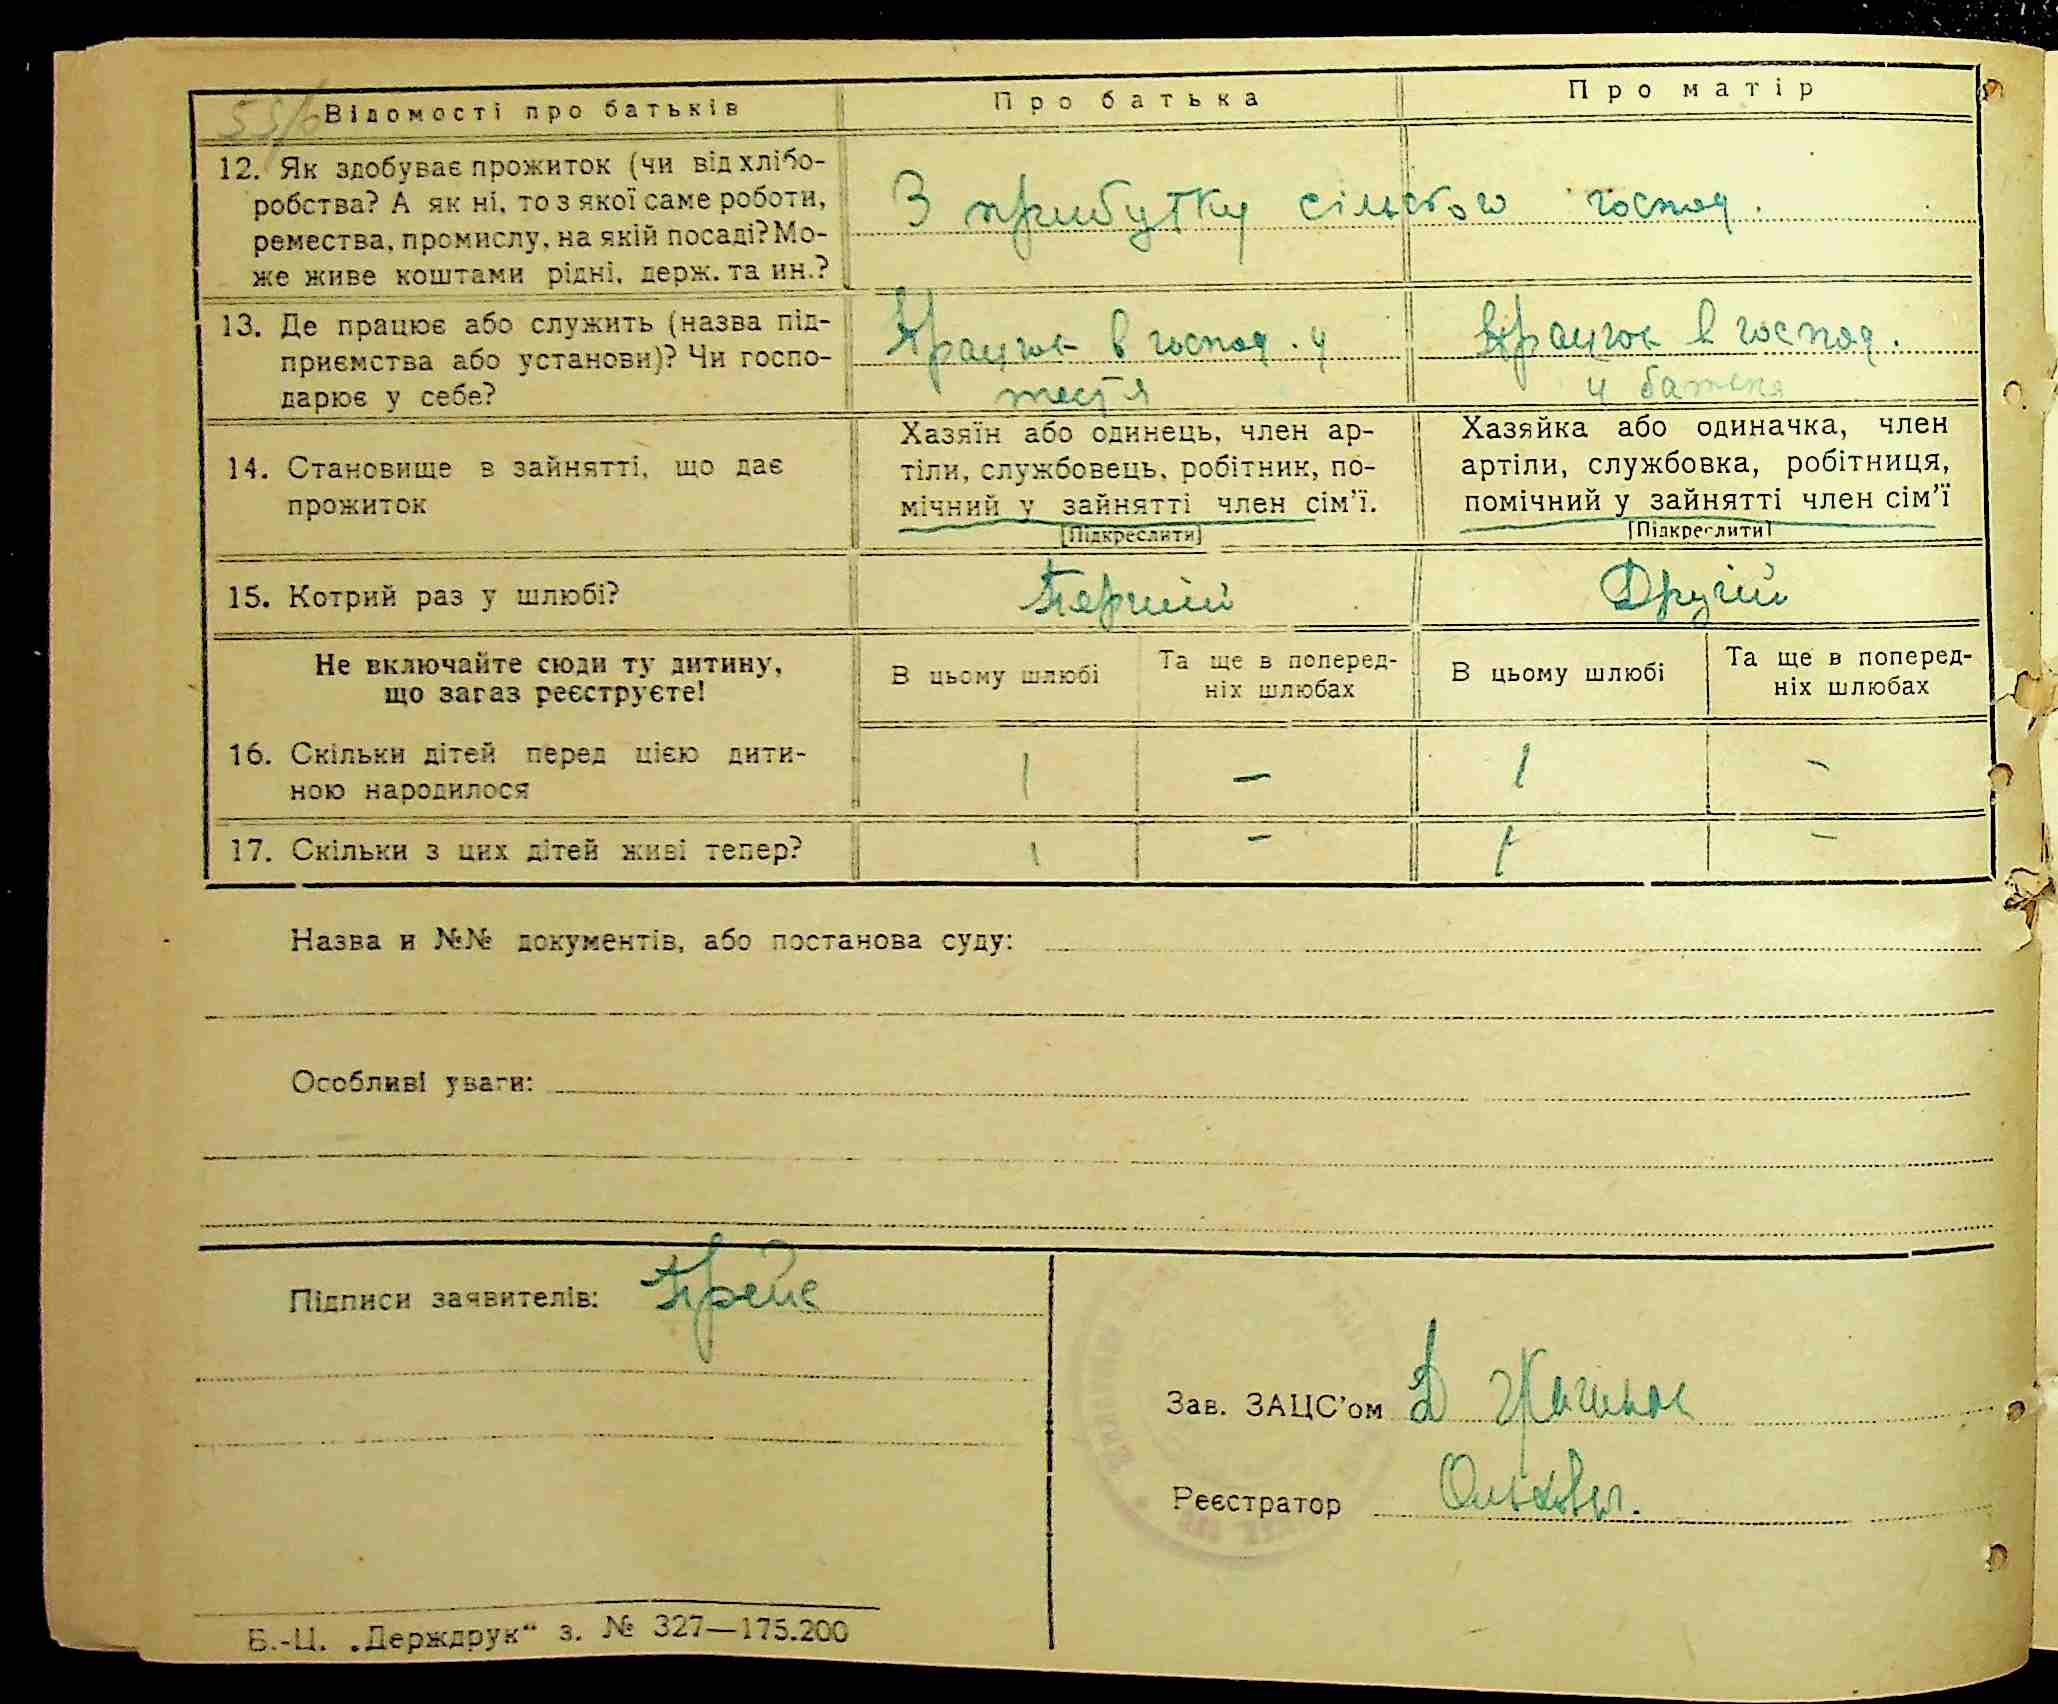 Відомості про батьків
Про батька
Про матір
12. Як здобуває прожиток (чи від хлібо-
робства? А як ні, то з якої саме роботи,
ремества, промислу, на якій посаді? Мо-
же живе коштами рідні, держ. та ин.?
З прибутку сільского господ.
13. Де працює або служить (назва під-
приємства або установи)? Чи госпо-
дарює у себе?
Працює в господ. у
тестя
Працює в господ.
у батька
14. Становище в зайнятті, що дає
прожиток
Хазяїн або одинець, член ар-
тіли, службовець, робітник, по-
мічний у зайнятті член сім'ї.
[Підкреслити]
Хазяйка або одиначка, член
артіли, службовка, робітниця,
помічний у зайнятті член сім'ї
[Підкреслити]
15. Котрий раз у шлюбі?
Перший
Другій
Не включайте сюди ту дитину,
що зараз реєструєте!
В цьому шлюбі
Та ще в поперед-
ніх шлюбах
В цьому шлюбі
Та ще в поперед-
ніх шлюбах
16. Скільки дітей перед цією дити-
ною народилося
1 – 1 –
17. Скільки з цих дітей живі тепер?
1 – 1 –
Назва и №№ документів, або постанова суду:
Особливі уваги:
Підписи заявителів:
Зав. ЗАЦС'ом
Реєстратор
Б.-Ц. „Держдрук“ з. № 327—175.200